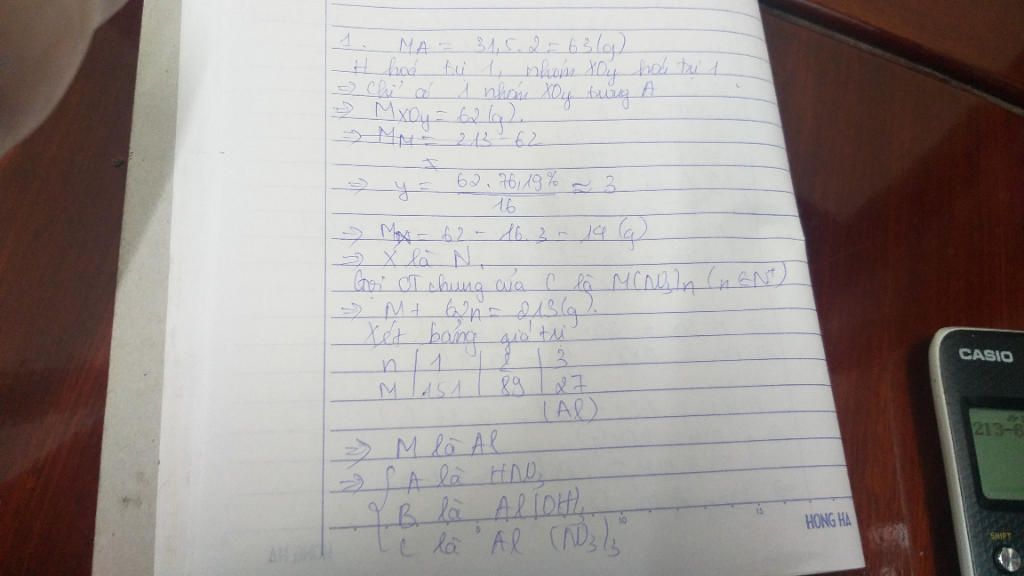 1. MA = 31,5.2 = 63(g)
H hoá trị 1, nhóm XOy hoá trị 1
⇒ Chỉ có 1 nhóm XOy trong A
⇒ MXOy = 62(g).
⇒ MM = 213 - 62
⇒ y = 62.76,19% / 16 ≈ 3
⇒ MX = 62 - 16.3 = 14 (g)
⇒ X là N.
Gọi CT chung của C là M(NO3)n (n ∈ N*)
⇒ M + 62n = 213(g).
Xét bảng giá trị
n | 1 | 2 | 3
M | 151 | 89 | 27
(Al)
⇒ M là Al
⇒ { A là HNO3
B là Al(OH)3
C là Al (NO3)3
HONG HA
CASIO
213-6
SHIFT
5 10 15